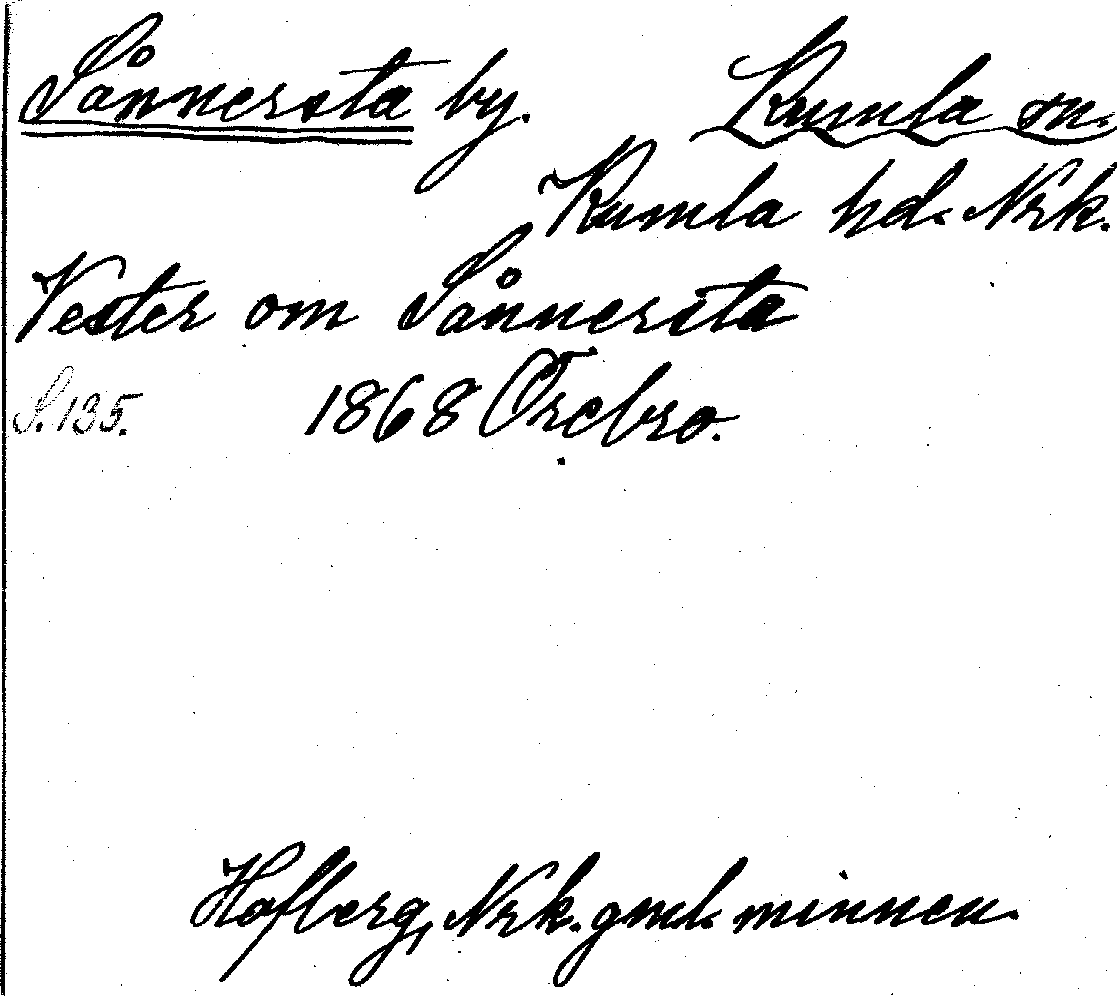 Sånnersta by. Kumla sn.
Kumla hd. Nrk.
Vester om Sånnersta
S. 135. 1868 Örebro.
Hofberg, Nrk. gml. minnen.